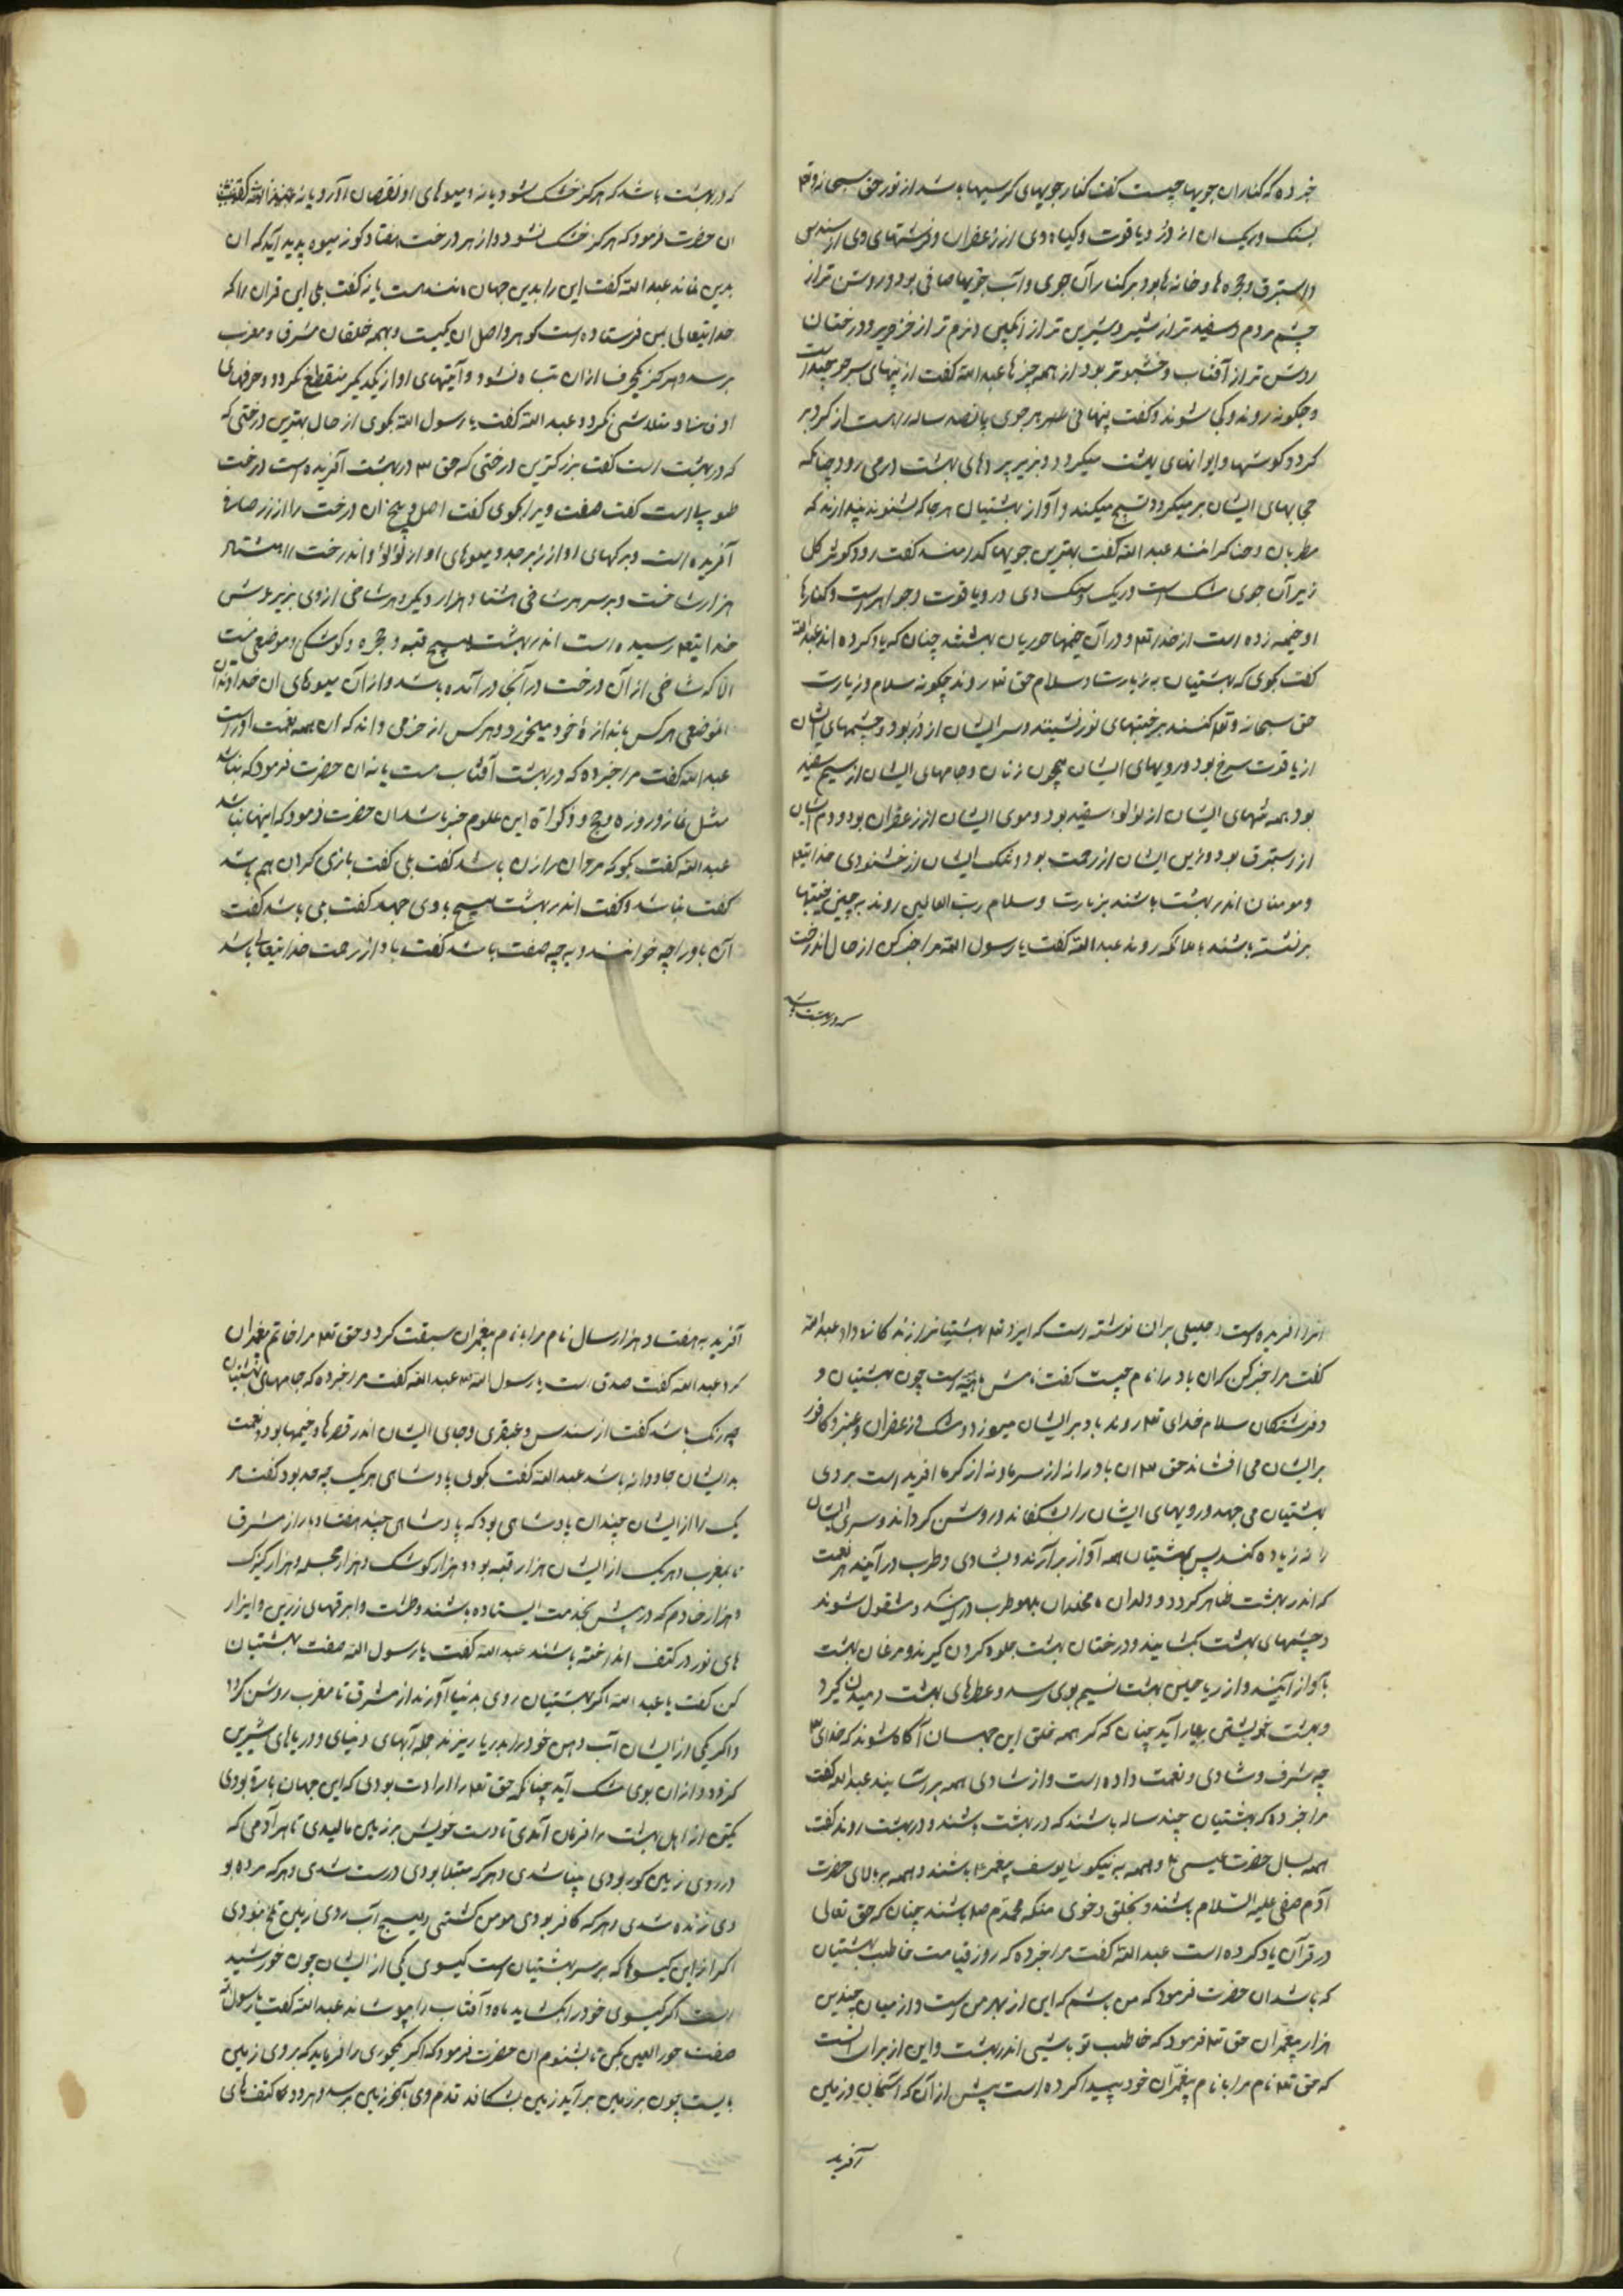 خبر ده که کناران جویها چیست گفت کنار جویهای کرسیها باشد از نور حق سبحانه و تع
سنک و ریک ان از در و یاقوت و کیاه وی از زعفران و فرشهای وی از سندس
و استبرق و حجره ها و خانه ها بود بر کنار آن جوی و آب جویها صافی بود و روشن تر از
چشم مردم و سفید تر از شیر و شیرین تر از انکبین و نرم تر از خز و حریر و درختان
روشن تر از آفتاب و خشبوتر بود از همه چیزها عبد الله گفت از پنهای سر جو چیداست
و چکونه روند و کی شوند و گفت پنهانی هر جوی پانصد ساله راه است از کرد بر
کرد کوشها و ایوانهای بهشت میکردد و بزیر پردهای بهشت در می رود چنانکه
حجابهای ایشان بر میکردد تسبیح میکند و آواز بهشتیان هر جا که بشنوند پندارند که
مطربان و خناکرانند عبد الله گفت بهترین جویها کدامند گفت رود کوثر کل
زیر آن جوی مشک است و ریک و سنک وی در و یاقوت و جواهر است و کنارها
او خیمه زده است از خدا تع و در آن خیمها حوریان بهشتند چنان که یاد کرده اند عبد الله
گفت بکوی که بهشتیان به زیارت و سلام حق تع روند چکونه سلام و زیارت
حق سبحانه و تع کنند بر نجیبهای نور نشینند و سر ایشان از در بود و چشمهای ایشان
از یاقوت سرخ بود و رویهای ایشان همچون زنان و جامهای ایشان از سیم سفید
بود همه تنهای ایشان از لؤلؤ سفید بود و موی ایشان از زعفران بود و دم ایشان
از استبرق بود و زین ایشان از رحمت بود و تنک ایشان از خشنودی خدایتع
و مومنان اندر بهشت باشند بزیارت و سلام رب العالمین روند به چنین نجیبها
برنشسته باشند با ملائکه روند عبد الله گفت یا رسول الله مرا خبر کن از حال اندرخت
که در بهشت باشد
که در بهشت باشد که هرکز خشک شود یا نه و میوهای او نقصان آورد یا نه
ان حضرت فرمود که هرکز خشک نشود و از هر درخت هفتاد کونه میوه پدید آید که ان
بدین نماند عبد الله گفت این را بدین جهان مانند هست یا نه گفت بلی این قران را که
خدایتعالی بمن فرستاده است کوهر و اصل ان یکیست و بهمه خلقان مشرق و مغرب
برسد و هرکز یکحرف از ان تباه نشود و آیتهای او از یکدیکر منقطع نکردد و حرفهای
او فنا و متلاشی نکردد عبد الله گفت یا رسول الله بکوی از حال بهترین درختی که
که در بهشت است گفت بزرکترین درختی که حق تع در بهشت آفریده است درخت
طوبیا است گفت صفت ویرا بکوی گفت اصل و بیخ ان درخت را از زر صافی
آفریده است و برکهای او از زبرجد و میوهای او از لؤلؤ و اندرخت را هشتاد
هزار شاخست و بر سر هر شاخی هشتاد هزار دیکر و هر شاخی از وی بزیر عرش
خدایتع رسیده است اندر بهشت هیچ قبه و حجره و کوشکی و موضعی نیست
الا که شاخی از آن درخت در آنجا در آمده باشد و از آن میوهای ان خداوند ان
الموضعی هر کس باندازه خود میخورد و هر کس از خرمی داند که ان همه نعمت اوراست
عبد الله گفت مرا خبر ده که در بهشت آفتاب هست یا نه ان حضرت فرمود که نباشد
مثل نماز و روزه و حج و زکواة این علوم خبر باشد ان حضرت فرمود که اینها نباشد
عبد الله گفت بکو که مردان را زن باشد گفت بلی گفت بازی کران هم باشد
گفت نباشد و گفت اندر بهشت هیچ باوی جهد گفت بلی باشد گفت
آن باد را چه خوانند و به چه صفت باشد گفت باد از رحمت خدایتعالی باشد
انرا آفریده است و جلیلی بران نوشته است که ایزد تع بهشتیانرا زندکانی داد عبد الله
گفت مرا خبر کن که ان باد را نام چیست گفت نامش است چون بهشتیان و
و فرشتکان سلام خدای تع روند باد بر ایشان میوزد و مشک و زعفران و عنبر و کافور
بر ایشان می افشاند حق تع ان باد را نه از سرما و نه از کرما آفریده است بر روی
بهشتیان می جهد و رویهای ایشان را بشکفاند و روشن کرداند و سرای ایشان
را نه زیاده کند پس بهشتیان همه آواز بر آرند و بشادی و طرب در آیند هر نعمت
که اندر بهشت ظاهر کردد و ولدان و مخلدان بلهو و طرب در آیند و مشغول شوند
و چشمهای بهشت بکشایند و درختان بهشت جلوه کردن کیرند و مرغان بهشت
بآواز آیند و از ریاحین بهشت نسیم بوی رسد و عطرهای بهشت دمیدن کیرد
و بهشت خویشتن بیاراید چنان که کر همه خلق این جهان آکاه شوند که خدای تع
چه شرف و شادی و نعمت داده است و از شادی همه بر بشتابیند عبد الله گفت
مرا خبر ده که بهشتیان چند ساله باشند که در بهشت باشند و در بهشت روند گفت
همه بسال حضرت عیسی ع و همه به نیکوئی یوسف پیغمبر ع باشند و همه ببالای حضرت
آدم صفی علیه السلام باشند و بخلق و خوی منکه محمدم ص باشند چنان که حق تعالی
در قرآن یاد کرده است عبد الله گفت مرا خبر ده که روز قیامت خاطب بهشتیان
که باشد ان حضرت فرمود که من باشم که این از بهر من است و از میان چندین
هزار پیغمبران حق تع فرمود که خاطب تو باشی اندر بهشت و این از برای انست
که حق تع نام مرا با نام پیغمبران خود پیدا کرده است پیش از آن که آسمان و زمین
آفرید
آفرید به هفتاد هزار سال نام مرا با نام پیغمبران سبقت کرد و حق تع مرا خاتم پیغمبران
کرد عبد الله گفت صدق است یا رسول الله عبد الله گفت مرا خبر ده که جامهای بهشتیان
چه رنک باشد گفت از سندس و عبقری و جای ایشان اندر قصرها و خیمها بود و نعمت
بدایشان جاودانه باشد عبد الله گفت بکوی پادشاهی هر یک چه حد بود گفت هر
یک را از ایشان چندان پادشاهی بود که پادشاهی چند هفتاد بار از مشرق
تا بمغرب و هر یک از ایشان هزار قبه بود و هزار کوشک و هزار حجله و هزار کنیزک
و هزار خادم که در پیش بخدمت ایستاده باشند و طشت و ابریقهای زرین و ایزار
های نور در کتف انداخته باشند عبد الله گفت یا رسول الله صفت بهشتیان
کن گفت یا عبد الله اکر بهشتیان روی بدنیا آورند از مشرق تا مغرب روشن کردد
و اکر یکی از ایشان آب دهن خود را بدریا ریزند جمله آبهای دنیای و دریاهای شیرین
کردد و از ان بوی مشک آید چنانکه حق تع را ارادت بودی که این جهان پاره بودی
یکتن از اهل بهشت را فرمان آمدی تا دست خویش بر زمین مالیدی تا هر آدمی که
در روی زمین کور بودی بینا شدی و هر که مبتلا بودی درست شدی و هر که مرده بو
دی زنده شدی و هر که کافر بودی مومن کشتی و هیچ آب روی زمین تلخ نبودی
اکر از این کیسوها که بر سر بهشتیان است کیسوی یکی از ایشان چون خورشید
است اکر کیسوی خود را بکشاید ماه و آفتاب را بپوشاند عبد الله گفت یا رسول الله
صفت حور العین بکن تا بشنوم ان حضرت فرمود که اکر یکحوری را فرماید که بروی زمین
بایست چون بر زمین بر آید زمین بشکافد قدم وی بآنجوز زمین برسد و هر دو کتفهای